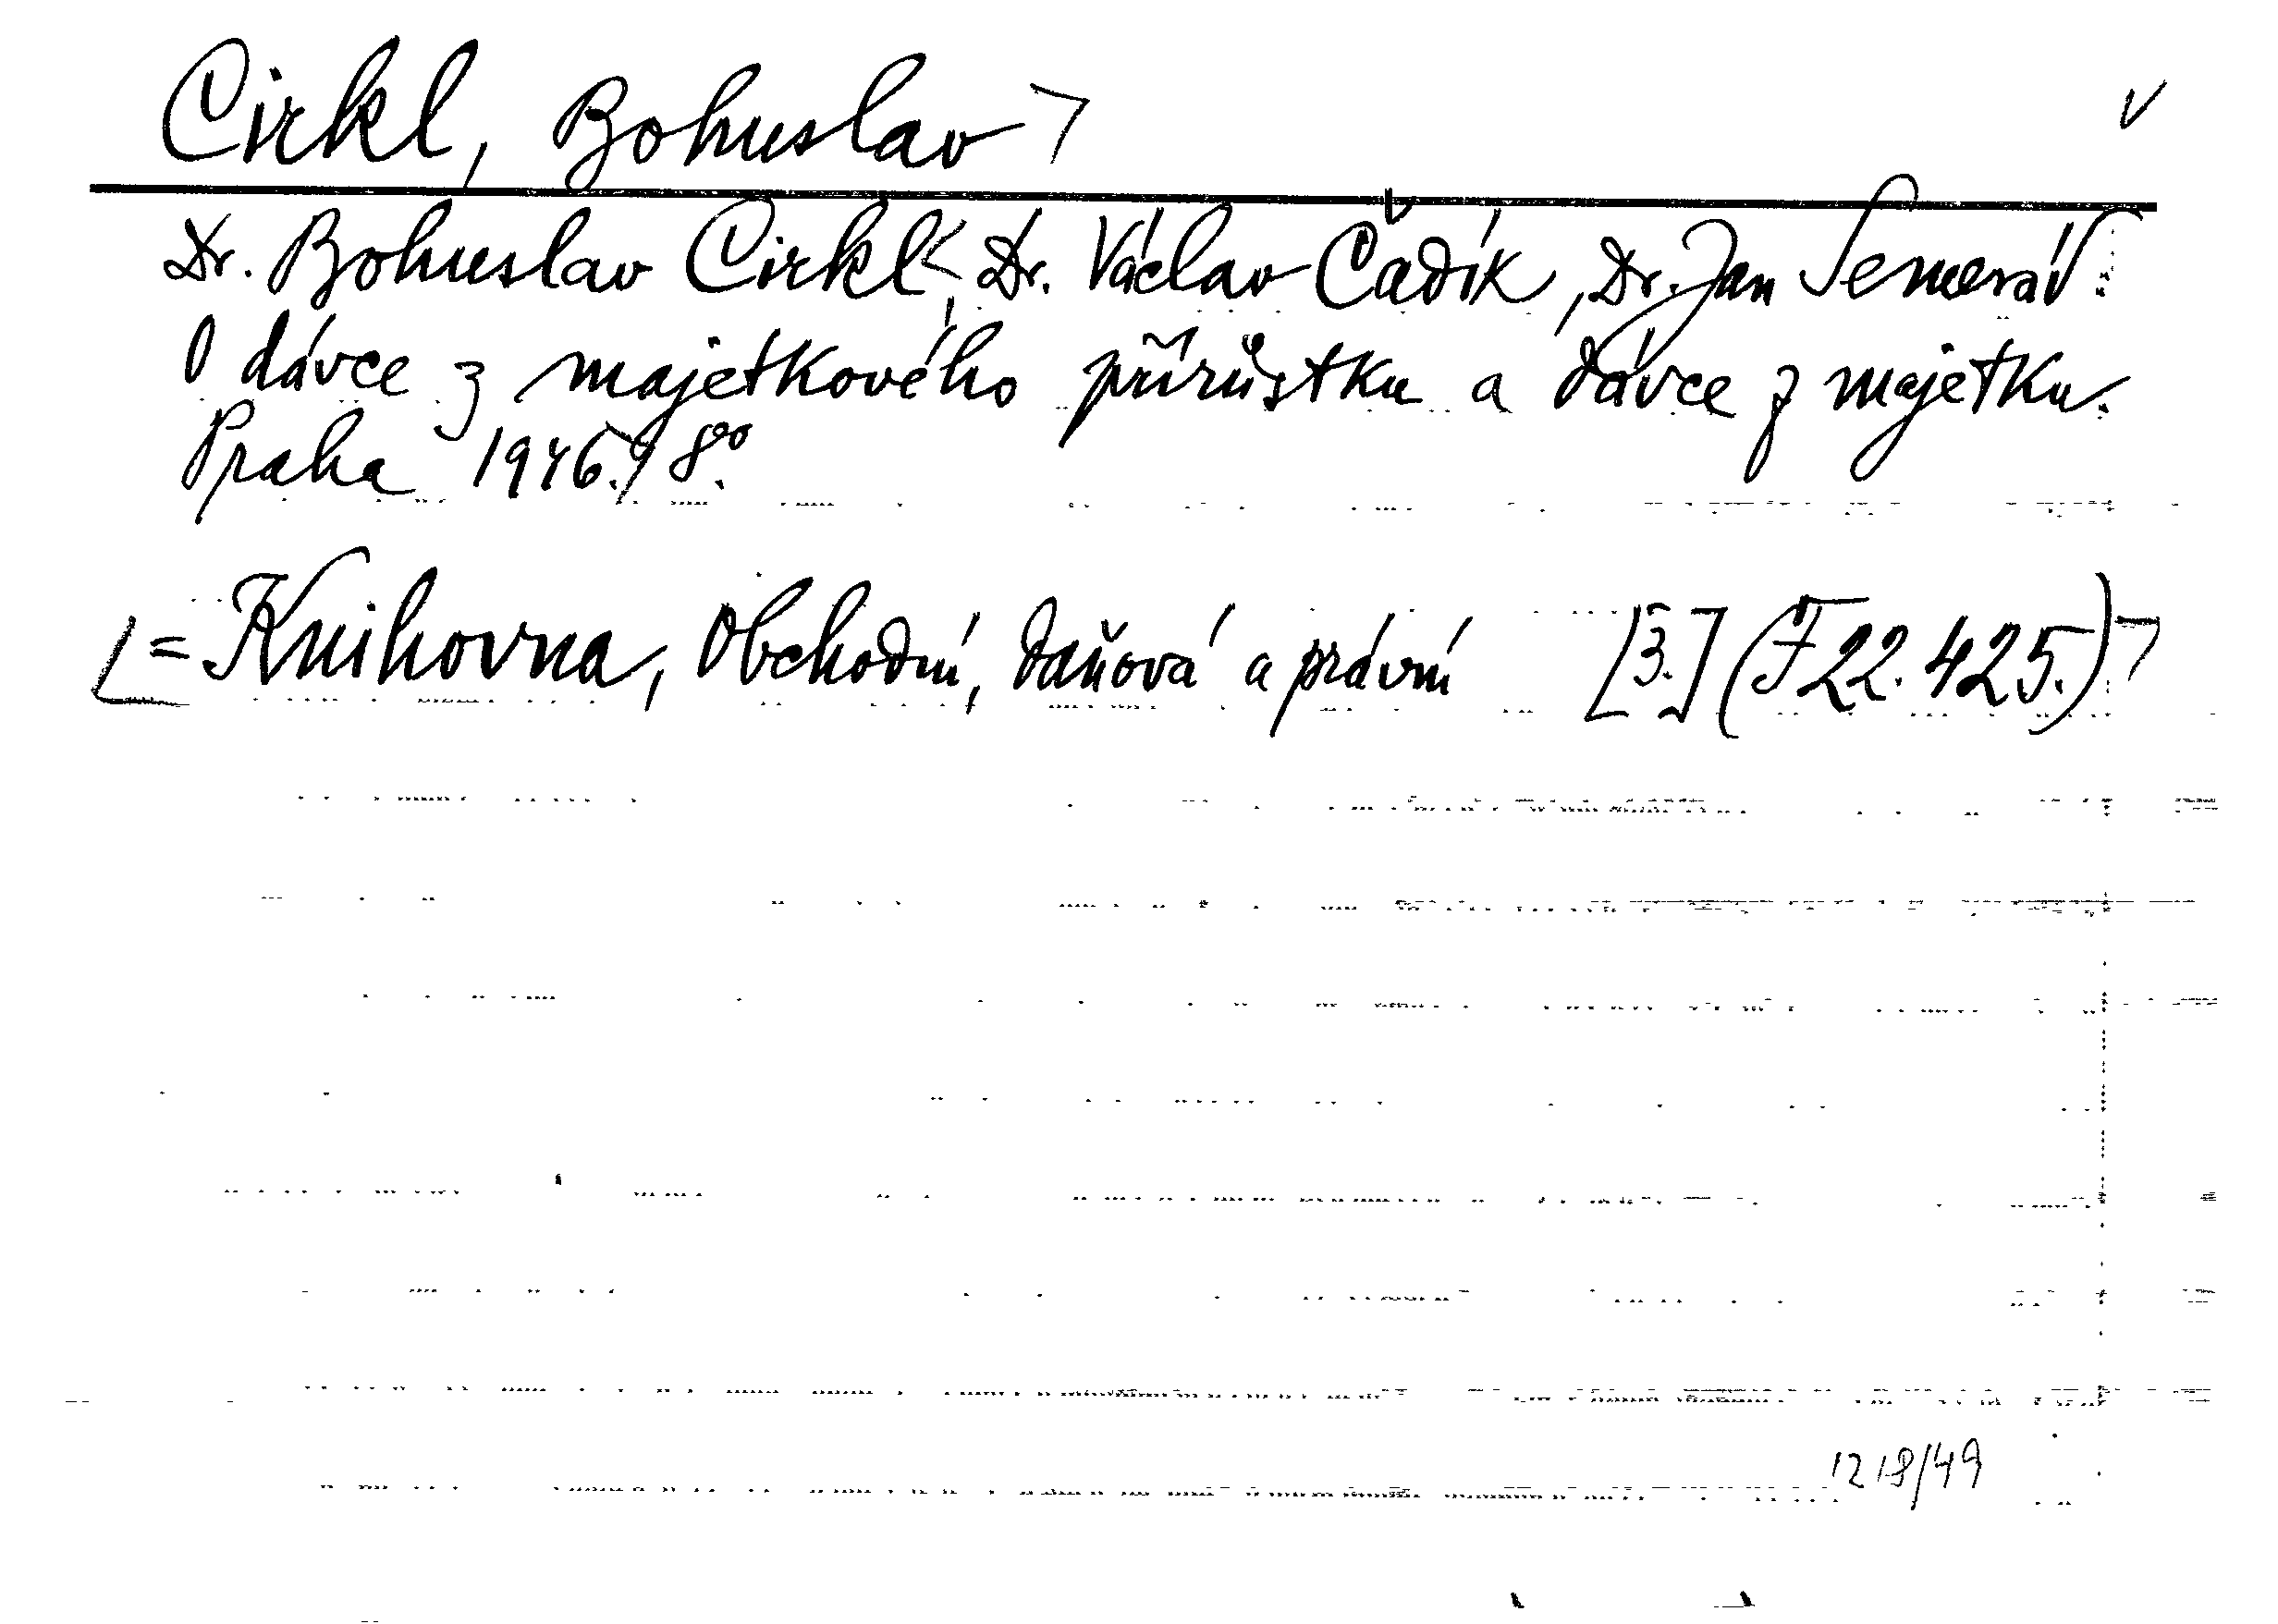 Cirkl, Bohuslav ⌝ v
Dr. Bohuslav Cirkl <, Dr. Václav Čadík, Dr. Jan Semerád:
O dávce z majetkového přírůstku a dávce z majetku.
Praha 1946.⌉ 8°.
[= Knihovna, Obchodní, daňová a právní [3.] (F 22.425.) ⌝
1218/49